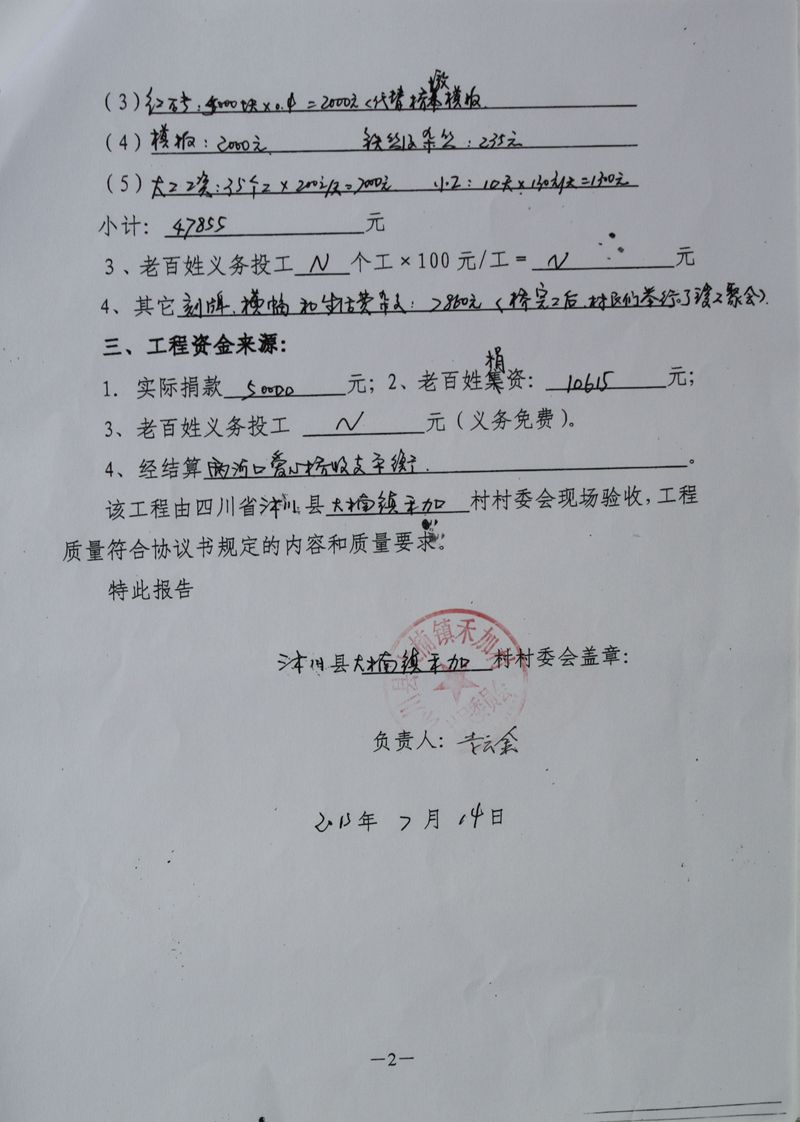 (3)红砖:5000块×0.4=2000元(代替桥墩模板
(4)模板:2000元 铁丝及杂丝:235元
(5)大工工资:35个工×200元/天=7000元 小工:10天×130元/天=1300元
小计:47855元
3、老百姓义务投工 N 个工×100元/工= N 元
4、其它刻牌、横幅和生活费杂支:2860元(桥完工后,村民们举行了竣工聚会).
三、工程资金来源:
1. 实际捐款 50000 元;2、老百姓捐资: 10615 元;
3、老百姓义务投工 N 元(义务免费)。
4、经结算两河口爱心桥收支平衡.。
该工程由四川省沐川县大楠镇禾加村村委会现场验收,工程
质量符合协议书规定的内容和质量要求。
特此报告
沐川县大楠镇禾加村村委会盖章:
负责人:云金
2013年7月14日
—2—